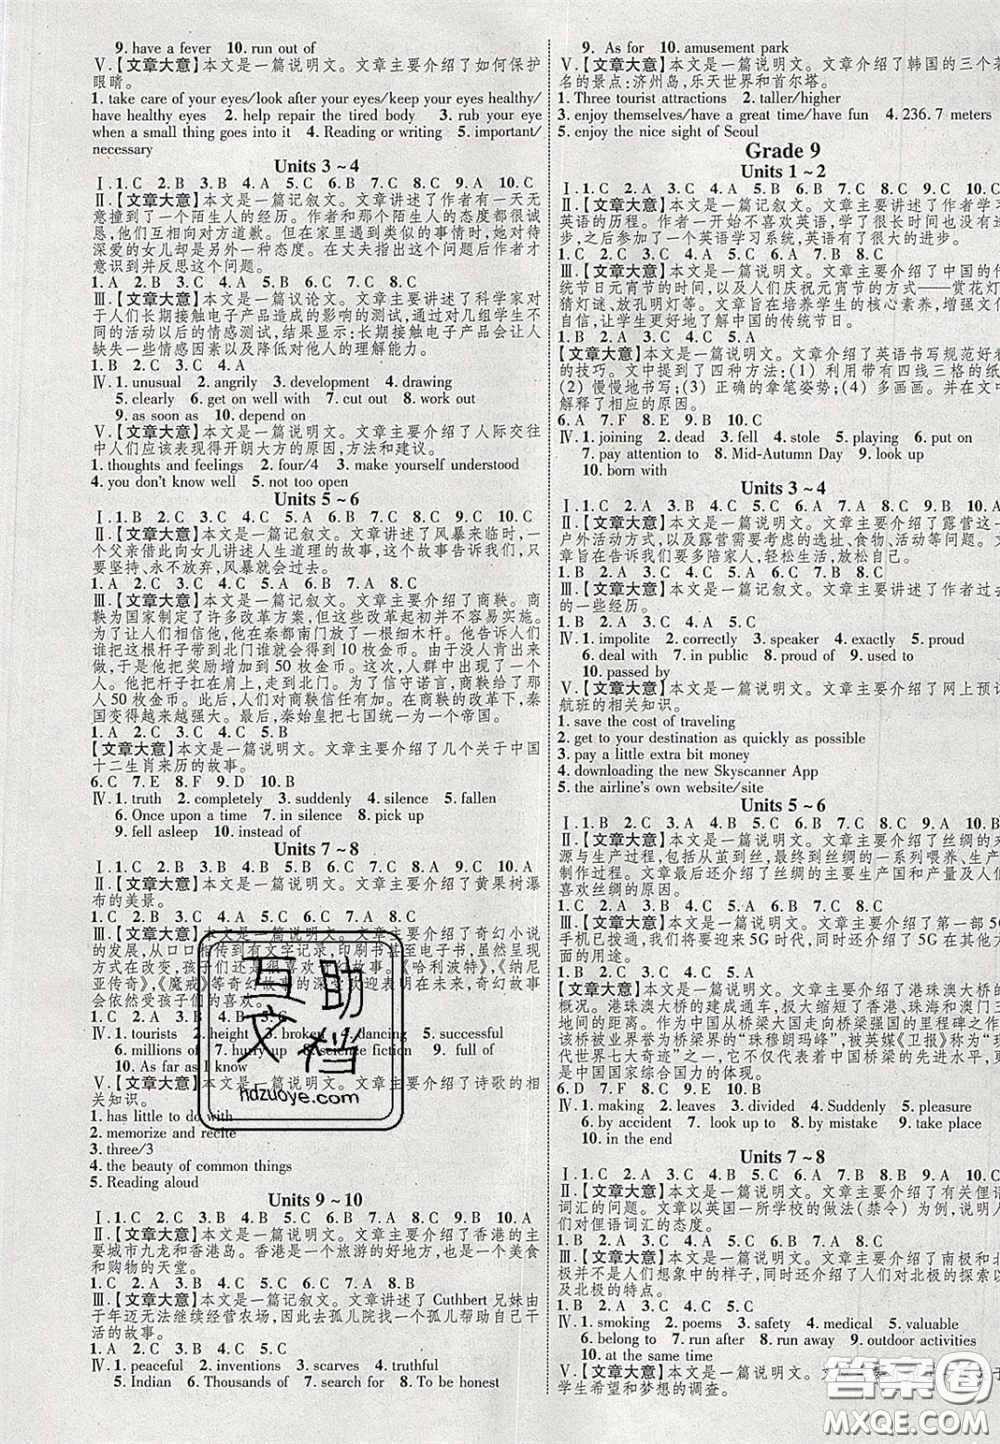 9. have a fever 10. run out of
Ⅴ.【文章大意】本文是一篇说明文。文章主要介绍了如何保护
眼睛。
1. take care of your eyes/look after your eyes/keep your eyes healthy/
have healthy eyes 2. help repair the tired body 3. rub your eye
when a small thing goes into it 4. Reading or writing 5. important/
necessary
Units 3~4
Ⅰ. 1. C 2. B 3. B 4. A 5. C 6. B 7. C 8. C 9. A 10. C
Ⅱ.【文章大意】本文是一篇记叙文。文章讲述了作者有一天无
意撞到了一个陌生人的经历。作者和陌生人的态度都很诚
恳,他们互相向对方道歉。但在家里遇到类似的事情时,她对待
深爱的女儿却是另外一种态度。在丈夫指出这个问题后作者才
意识到并反思这个问题。
1. A 2. B 3. C 4. A 5. C 6. B 7. C 8. B
Ⅲ.【文章大意】本文是一篇议论文。文章主要讲述了科学家对
于人们长期接触电子产品造成的影响的测试,通过对几组学生不
同的活动以后的情感测试,结果显示:长期接触电子产品会让人
缺失一些情感因素以及降低对他人的理解能力。
1. B 2. A 3. C
Ⅳ. 1. unusual 2. angrily 3. development 4. drawing
5. clearly 6. get on well with 7. cut out 8. work out
9. as soon as 10. depend on
Ⅴ.【文章大意】本文是一篇说明文。文章主要介绍了人际交往
中人们应该表现得开朗大方的原因,方法和建议。
1. thoughts and feelings 2. four/4 3. make yourself understood
4. you don't know well 5. not too open
Units 5~6
Ⅰ. 1. B 2. C 3. A 4. A 5. C 6. B 7. C 8. C 9. B 10. C
Ⅱ.【文章大意】本文是一篇记叙文。文章讲述了风暴来临时,一
个父亲借此向女儿讲述人生道理的故事,这个故事告诉我们,只
要坚持、永不放弃,风暴就会过去。
1. A 2. C 3. A 4. B 5. B 6. A 7. B 8. C
Ⅲ.【文章大意】本文是一篇记叙文。文章主要介绍了商鞅。商
鞅为国家制定了许多改革方案,但是改革并不容易实施。
为了让人们相信他,他在秦都南门放了一根细木杆。他告诉人们
谁把杆子带到北门谁就会得到10枚金币。由于没人肯出来
做,于是他把奖励增加到50枚金币。这次,人群中出现了一个
人。他把杆子扛在肩上,走到北门。为了信守诺言,商鞅给了他
50枚金币。人们开始对商鞅信任有加。在商鞅的改革下,秦
国变得越来越强大。最后,秦始皇把七国统一为一个帝国。
1. C 2. A 3. C 4. C 5. A
【文章大意】本文是一篇说明文。文章主要介绍了几个关于中国
十二生肖来历的故事。
6. C 7. E 8. F 9. D 10. B
Ⅳ. 1. truth 2. completely 3. suddenly 4. silence 5. fallen
6. Once upon a time 7. in silence 8. pick up
9. fell asleep 10. instead of
Units 7~8
Ⅰ. 1. C 2. B 3. B 4. A 5. B 6. C 7. A 8. C 9. C 10. A
Ⅱ.【文章大意】本文是一篇说明文。文章主要介绍了黄果树瀑
布的美景。
1. C 2. C 3. B 4. A 5. B 6. A 7. C 8. C
Ⅲ.【文章大意】本文是一篇说明文。文章主要介绍了奇幻小说
的发展,从口口相传到有文字记录、印刷书甚至电子书,虽然呈现
方式在改变,孩子们还是很喜欢奇幻故事。《哈利波特》,《纳尼
亚传奇》,《魔戒》等奇幻故事的深受欢迎表明在未来,奇幻故事
会依然受孩子们的喜欢。
1. A 2. A 3. B 4. B 5. C
Ⅳ. 1. tourists 2. height 3. broken 4. dancing 5. successful
6. millions of 7. hurry up 8. science fiction 9. full of
10. As far as I know
Ⅴ.【文章大意】本文是一篇说明文。文章主要介绍了诗歌的相
关知识。
1. has little to do with
2. memorize and recite
3. three/3
4. the beauty of common things
5. Reading aloud
Units 9~10
Ⅰ. 1. C 2. B 3. C 4. A 5. B 6. B 7. C 8. A 9. B 10. A
Ⅱ.【文章大意】本文是一篇说明文。文章主要介绍了香港的主
要城市九龙和香港岛。香港是一个旅游的好地方,也是一个美食
和购物的天堂。
1. C 2. C 3. C 4. B 5. A 6. C 7. A 8. B
Ⅲ.【文章大意】本文是一篇记叙文。文章讲述了Cuthbert兄妹由
于年迈无法继续经营农场,因此去孤儿院找一个孤儿帮助自己干
活的故事。
1. C 2. B 3. A
Ⅳ. 1. peaceful 2. inventions 3. scarves 4. truthful
5. Indian 6. Thousands of 7. search for 8. To be honest
9. As for 10. amusement park
Ⅴ.【文章大意】本文是一篇说明文。文章介绍了韩国的三个著
名的景点:济州岛,乐天世界和首尔塔。
1. Three tourist attractions 2. taller/higher
3. enjoy themselves/have a great time/have fun 4. 236.7 meters
5. enjoy the nice sight of Seoul
Grade 9
Units 1~2
Ⅰ. 1. C 2. A 3. C 4. A 5. C 6. B 7. A 8. C 9. A 10. B
Ⅱ.【文章大意】本文是一篇记叙文。文章主要讲述了作者学习
英语的历程。作者一开始不喜欢英语,学了很长时间也没有进
步,之后参加了一个英语学习系统,英语有了很大的进步。
1. C 2. C 3. B 4. A 5. A 6. C 7. A 8. B
Ⅲ.【文章大意】本文是一篇说明文。文章主要介绍了中国的传
统节日元宵节的时间,以及人们庆祝元宵节的方式——赏花灯
猜灯谜、放孔明灯等。文章旨在培养学生的核心素养,增强文
自信,让学生更好地了解中国的传统节日。
1. B 2. A 3. B 4. C 5. A
【文章大意】本文是一篇说明文。文章介绍了英语书写规范好看
的技巧。文中提到了四种方法:(1)利用带有四线三格的纸
(2)慢慢地书写;(3)正确的拿笔姿势;(4)多画画。并在文
解释了相应的原因。
6. A 7. F 8. E 9. B 10. C
Ⅳ. 1. joining 2. dead 3. fell 4. stole 5. playing 6. put on
7. pay attention to 8. Mid-Autumn Day 9. look up
10. born with
Units 3~4
Ⅰ. 1. C 2. A 3. B 4. C 5. B 6. A 7. C 8. B 9. A 10. C
Ⅱ.【文章大意】本文是一篇说明文。文章主要介绍了露营这一
户外活动方式,以及露营需要考虑的选址、食物、活动等问题。文
章旨在告诉我们要多陪家人,轻松生活,放飞自己。
1. B 2. B 3. A 4. C 5. A 6. B 7. C 8. C
Ⅲ.【文章大意】本文是一篇记叙文。文章主要讲述了作者过去
的一些经历。
1. B 2. C 3. A 4. C 5. A
Ⅳ. 1. impolite 2. correctly 3. speaker 4. exactly 5. proud
6. deal with 7. in public 8. proud of 9. used to
10. passed by
Ⅴ.【文章大意】本文是一篇说明文。文章主要介绍了网上预订
航班的相关知识。
1. save the cost of traveling
2. get to your destination as quickly as possible
3. pay a little extra bit money
4. downloading the new Skyscanner App
5. the airline's own website/site
Units 5~6
Ⅰ. 1. C 2. C 3. A 4. B 5. A 6. B 7. C 8. A 9. C 10. B
Ⅱ.【文章大意】本文是一篇说明文。文章主要介绍了丝绸的来
源与生产过程,包括从茧到丝,最终到丝绸的一系列喂养、生产
制作过程。文章最后还介绍了丝绸的主要生产国和产量及人们
喜欢丝绸的原因。
1. B 2. C 3. C 4. B 5. A 6. A 7. C 8. A
Ⅲ.【文章大意】本文是一篇说明文。文章主要介绍了第一部5G
手机已拨通,我们将要迎来5G时代,同时还介绍了5G在其他方
面的用途。
1. A 2. C 3. C 4. B 5. A
【文章大意】本文是一篇说明文。文章主要介绍了港珠澳大桥的
概况。港珠澳大桥的建成通车,极大缩短了香港、珠海和澳门三
地间的距离。作为中国从桥梁大国走向桥梁强国的里程碑之作
该桥被业界誉为桥梁界的“珠穆朗玛峰”,被英媒《卫报》称为“现
代世界七大奇迹”之一,它不仅代表了中国桥梁的先进水平,更
是中国国家综合国力的体现。
6. D 7. F 8. C 9. E 10. B
Ⅳ. 1. making 2. leaves 3. divided 4. Suddenly 5. pleasure
6. by accident 7. look up to 8. by mistake 9. take place
10. in the end
Units 7~8
Ⅰ. 1. C 2. A 3. B 4. A 5. C 6. A 7. C 8. B 9. A 10. C
Ⅱ.【文章大意】本文是一篇说明文。文章主要介绍了有关俚语
词汇的内容。文章以英国一所学校的做法(禁令)为例,说明人
们对俚语词汇的态度。
1. C 2. B 3. B 4. A 5. B 6. C 7. A 8. C
Ⅲ.【文章大意】本文是一篇说明文。文章主要介绍了南极和北
极并不是人们想象中的样子,同时还介绍了人们对北极的探索以
及北极的特点。
1. B 2. C 3. A 4. A 5. C
Ⅳ. 1. smoking 2. poems 3. safety 4. medical 5. valuable
6. belong to 7. prefer 8. run away 9. outdoor activities
10. at the same time
Ⅴ.【文章大意】本文是一篇说明文。文章主要介绍了
学生希望和梦想的调查。
互助
文档
hdzuoye.com
答案圈
MXQE.COM